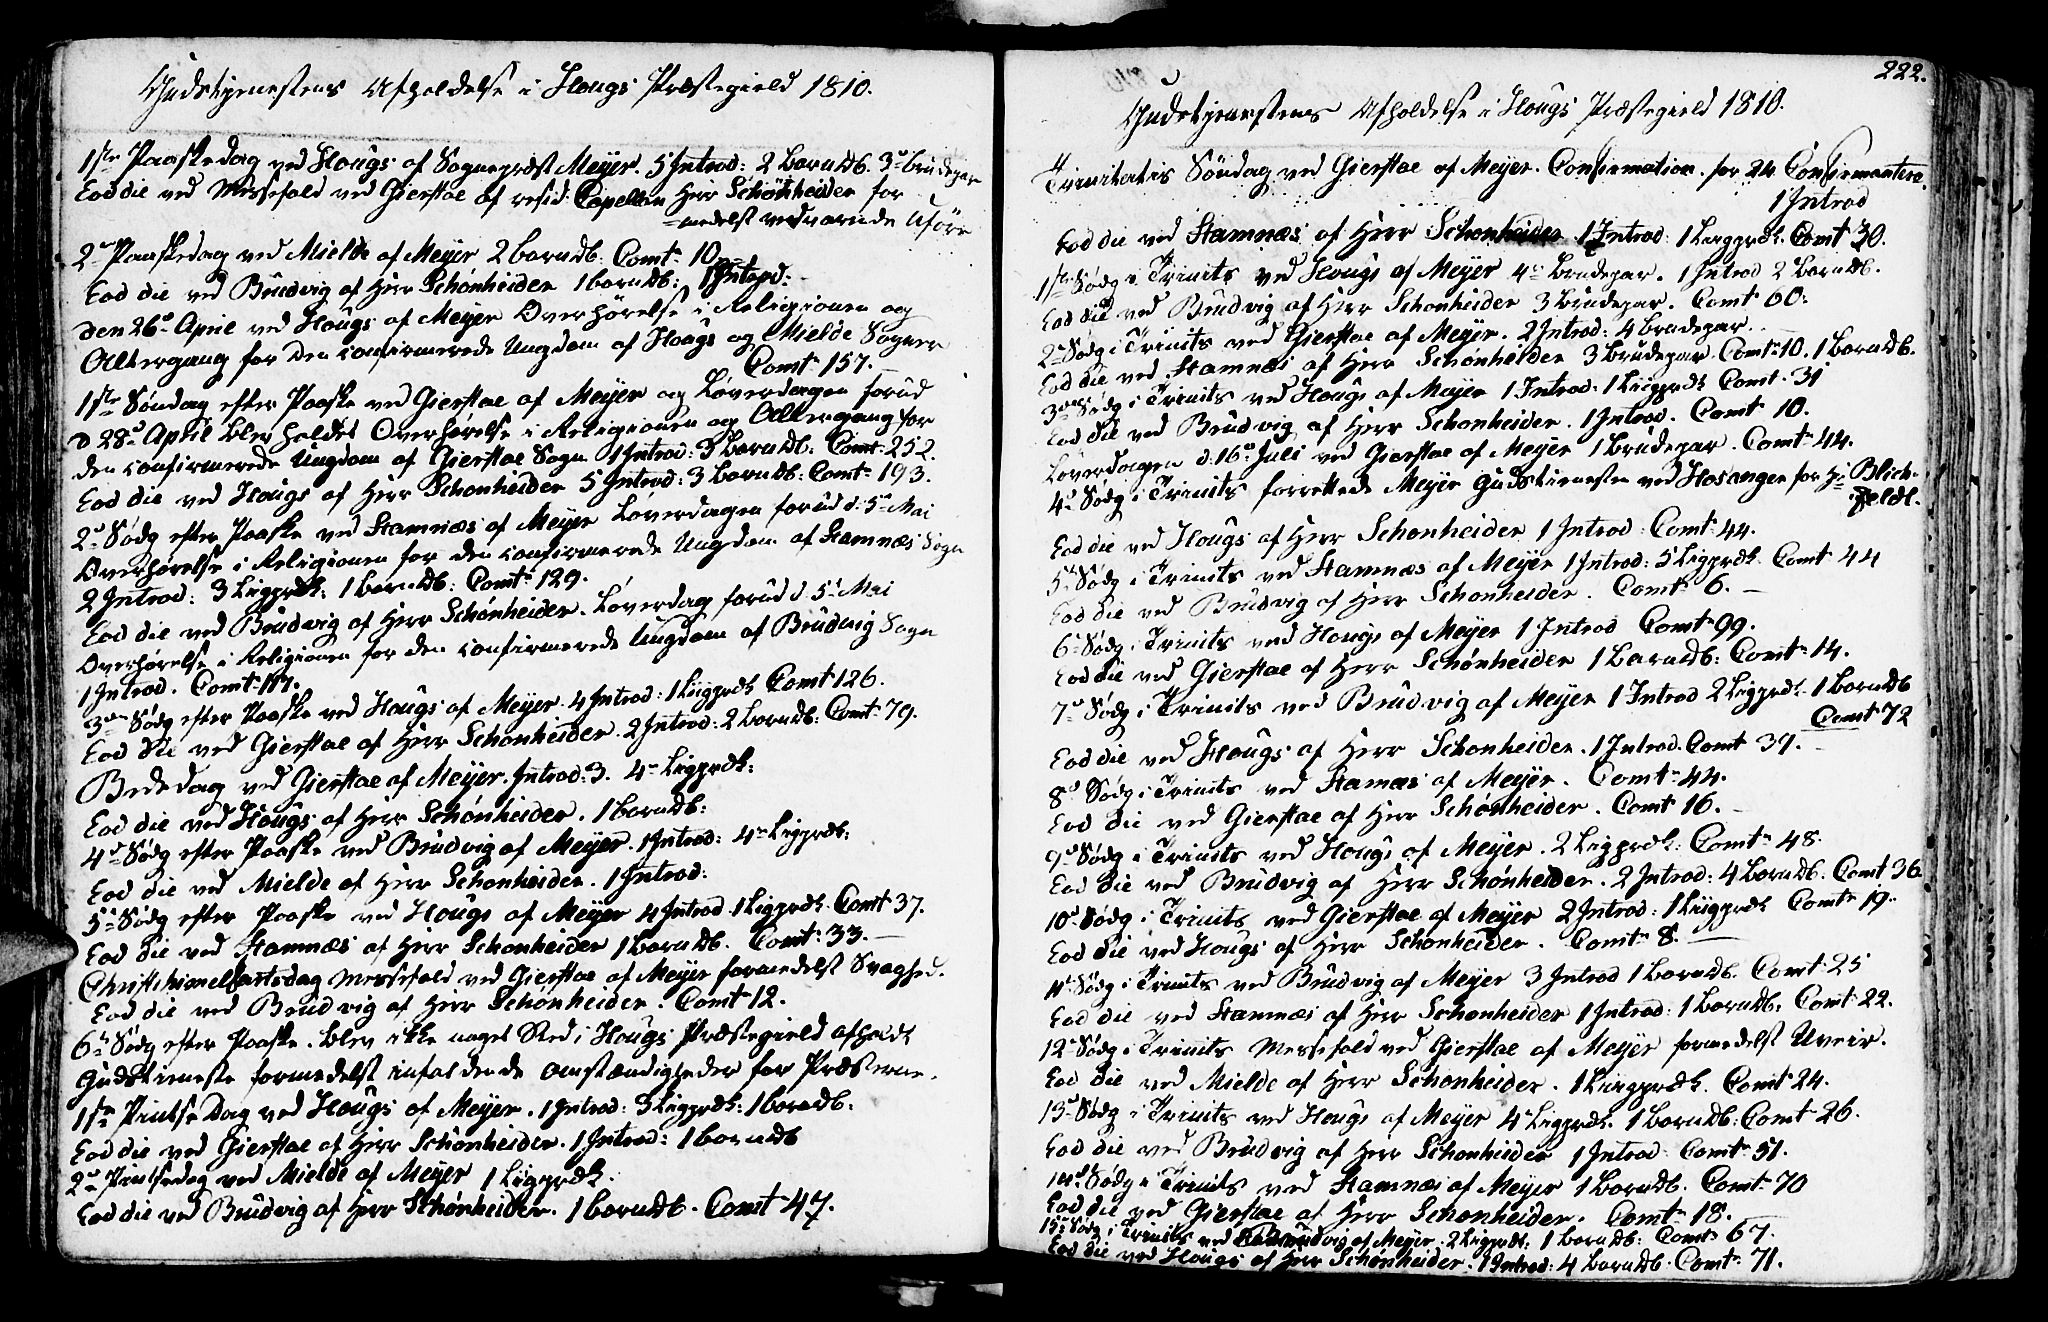 Gudstjenestens Afholdelse i Hougs Præstegield 1810.
1ste Paaskedag ved Hougs af Sognepræst Meyer. 5 Introd: 2 barndb. 3de brudepar
Eod die ved Messefald ved Gierstae af resid: Capellan Herr Schønheider for
=medelst vedvarende Uføre
2den Paaskedag ved Mielde af Meyer 2 barndb. Comt. 10
Eod die ved Brudvig af Herr Schønheider 1 barndb: 1 Introd:
den 26de April ved Hougs af Meyer Overhørelse i Religionen og
Altergang for den confirmerede Ungdom af Hougs og Mielde Sogner
Comt. 157.
1ste Søndag efter Paaske ved Gierstae af Meyer og Løverdagen forud
d 28de April blev holdet Overhørelse i Religionen og Altergang for
den confirmerede Ungdom af Gierstae Sogn 1 Introd: 3 barndb: Comt. 252.
Eod die ved Hougs af Herr Schønheider 5 Introd: 3 barndb: Comt. 193.
2den Södg efter Paaske ved Stamnæs af Meyer Løverdagen forud d: 5te Mai
Overhørelse i Religionen for den confirmerede Ungdom af Stamnæs Sogn
2 Introd: 3 Liigprdk: 1 barndb: Comt. 129.
Eod die ved Brudvig af Herr Schønheider. Løverdag forud d 5te Mai
Overhørelse i Religionen for den confirmerede Ungdom af Brudvig Sogn
1 Introd. Comt. 117.
3die Södg efter Paaske ved Hougs af Meyer. 4 Introd: 1 Liigprdk Comt 126.
Eod die ved Gierstae af Herr Schønheider 2 Introd: 2 barndb: Comt. 79.
Bededag ved Gierstae af Meyer. Introd: 3. 4re Ligprdk:
Eod die ved Hougs af Herr Schønheider. 1 barndb:
4de Södg efter Paaske ved Brudvig af Meyer. 1 Introd: 4re Ligprdk:
Eod die ved Mielde af Herr Schønheider. 1 Introd:
5te Södg efter Paaske ved Hougs af Meyer 4 Introd 1 Ligprdk. Comt 37.
Eod die ved Stamnæs af Herr Schønheider 1 barndb. Comt: 33.
Christi himelfartsdag Messefald ved Gierstae af Meyer formedelst Svaghed.
Eod die ved Brudvig af Herr Schønheider. Comt 12.
6te Södg efter Paaske. blev ikke noget Sted i Hougs Præstegield afholdt
Gudstieneste formedelst infaldende omstændigheder for Præsterne.
1ste Pintse Dag ved Hougs af Meyer. 1 Introd: 3 Ligprdk: 1 barndb.
Eod die ved Gierstae af Herr Schønheider. 1 Introd: 1 barndb
2den Pintsedag ved Mielde af Meyer 1 Ligprdk.
Eod die ved Brudvig af Herr Schønheider. 1 barndb. Comt 47.
222.
Gudstjenestens Afholdelse i Hougs Præstegield 1810.
Trinitatis Söndag ved Gierstae af Meyer. Confirmation for 24 Confirmantere.
1 Introd
Eod die ved Stamnæs af Herr Schønheider 1 Introd: 1 Liigprdk. Comt 30.
1ste Södg i Trinits ved Hougs af Meyer 4re brudepar. 1 Introd 2 barndb.
Eod die ved Brudvig af Herr Schønheider 3 brudepar. Comt 60.
2den Södg i Trinits ved Gierstae af Meyer. 2 Introd: 4 brudepar.
Eod die ved Stamnæs af Herr Schønheider 3 brudepar. Comt. 10. 1 barndb.
3die Södg i Trinits ved Hougs af Meyer 1 Introd: 1 Liigprdk Comt. 31
Eod die ved Brudvig af Herr Schønheider. 1 Introd. Comt 10.
Løverdagen d: 16de Juli ved Gierstae af Meyer 1 brudepar. Comt. 44.
4de Södg i Trinits forrettede Meyer Gudstienesten ved Hosanger for Hr Blich-
feldt.
Eod die ved Hougs af Herr Schønheider 1 Introd Comt. 44.
5te Södg i Trinits ved Stamnæs af Meyer 1 Introd: 5 Ligprdk. Comt 44
Eod die ved Brudvig af Herr Schønheider. Comt. 6.
6te Södg i Trinits ved Hougs af Meyer 1 Introd Comt. 99.
Eod die ved Gierstae af Herr Schønheider 1 barndb: Comt. 14.
7de Södg i Trinits ved Brudvig af Meyer 1 Introd 2 Ligprdk. 1 barndb
Comt 72
Eod die ved Hougs af Herr Schønheider. 1 Introd. Comt 39.
8de Södg i Trinits ved Stamnæs af Meyer. Comt. 44.
Eod die ved Gierstae af Herr Schønheider. Comt 16.
9de Södg i Trinits ved Hougs af Meyer. 2 Ligprdk: Comt. 48.
Eod die ved Brudvig af Herr Schønheider. 2 Introd: 4 barndb. Comt 36
10de Södg i Trinits ved Gierstae af Meyer 2 Introd: 1 Liigprdk Comt. 19.
Eod die ved Hougs af Herr Schønheider. Comt. 8.
11te Södg i Trinits ved Brudvig af Meyer 3 Introd 1 barndb. Comt. 25
Eod die ved Stamnæs af Herr Schønheider 1 Introd: 1 barndb. Comt. 22.
12te Södg i Trinits Messefald ved Gierstae af Meyer formedelst Uveir.
Eod die ved Mielde af Herr Schønheider. 1 Liigprdk. Comt. 24.
13de Södg i Trinits ved Hougs af Meyer 4re Ligprdk. 1 barndb: Comt 26.
Eod die ved Brudvig af Herr Schønheider 1 Introd: Comt. 51.
14de Södg i Trinits ved Stamnæs af Meyer 1 barndb. Comt. 70
Eod die ved Gierstae af Herr Schønheider. Comt. 18.
15de Södg i Trinits ved Brudvig af Meyer. 2 Ligprdk: 1 barndb: Comt. 67.
Eod die ved Hougs af Herr Schønheider. 1 Introd: 4 barndb. Comt. 71.